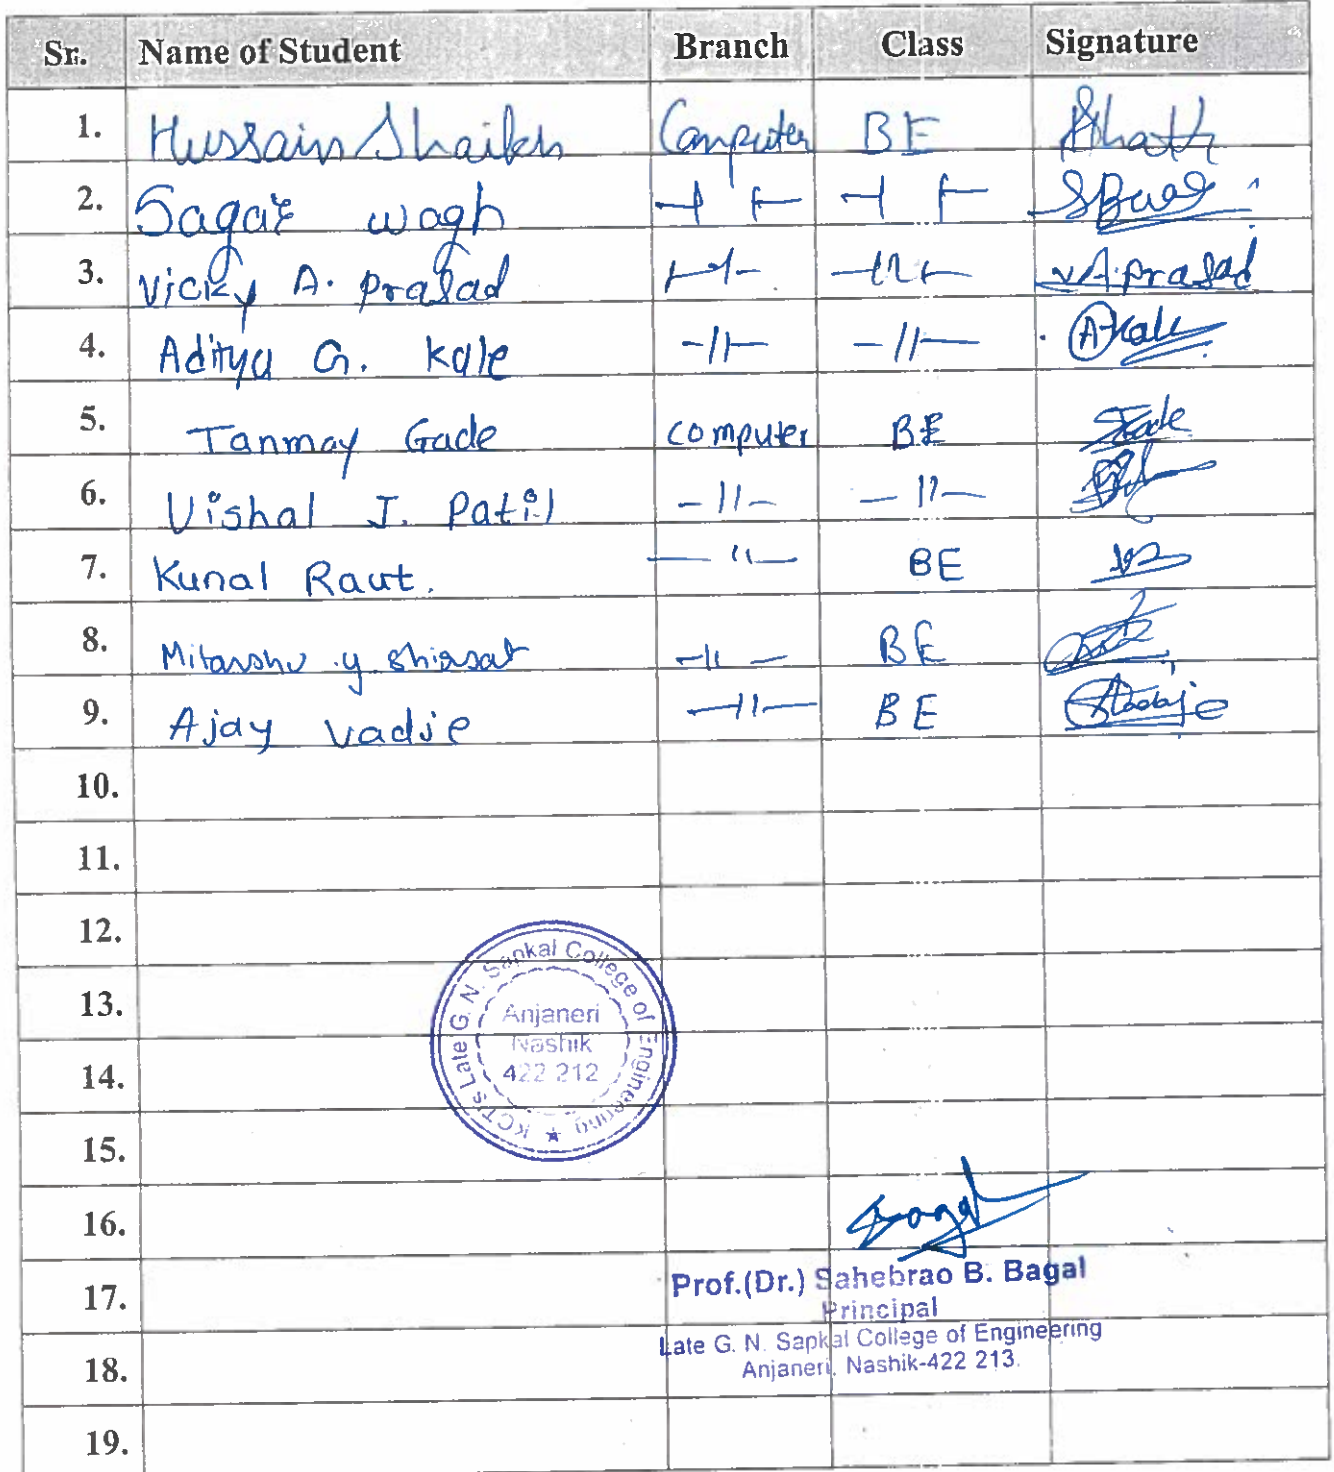 Sr. Name of Student Branch Class Signature
1. Hussain Shaikh Computer BE
2. Sagar wagh -||- -||-
3. Vicky A. prasad -||- -||- V.A.prasad
4. Aditya G. Kale -||- -||- A.Kale
5. Tanmay Gade computer BE
6. Vishal J. Patil -||- -||-
7. Kunal Raut. -||- BE
8. Mitanshu .y. Shirsat -||- BE
9. Ajay Vadje -||- BE
10.
11.
12.
13.
14.
15.
16.
17.
18.
19.
KCT's Late G. N. Sapkal College of Engineering ★
Anjaneri
Nashik
422 212
Prof.(Dr.) Sahebrao B. Bagal
Principal
Late G. N. Sapkal College of Engineering
Anjaneri, Nashik-422 213.